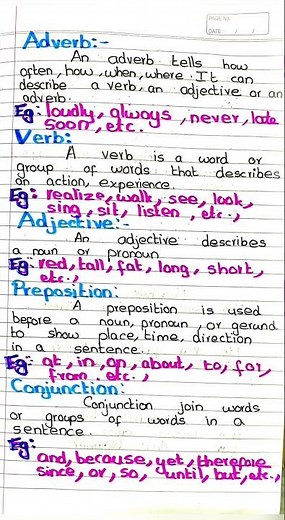 PAGE No.
DATE / /
Adverb:-
An adverb tells how
often, how, when, where. It can
describe a verb, an adjective or an
adverb.
Eg: loudly, always, never, late
soon, etc.
Verb:
A verb is a word or
group of words that describes
an action, experience.
Eg: realize, walk, see, look,
sing, sit, listen, etc.,
Adjective:-
An adjective describes
a noun or pronoun
Eg: red, tall, fat, long, short,
etc.,
Preposition:
A preposition is used
before a noun, pronoun, or gerund
to show place, time, direction
in a sentence.
Eg: at, in, on, about, to, for,
from, etc.,
Conjunction:
Conjunction join words
or groups of words in a
sentence.
Eg:
and, because, yet, therefore
since, or, so, until, but, etc.,